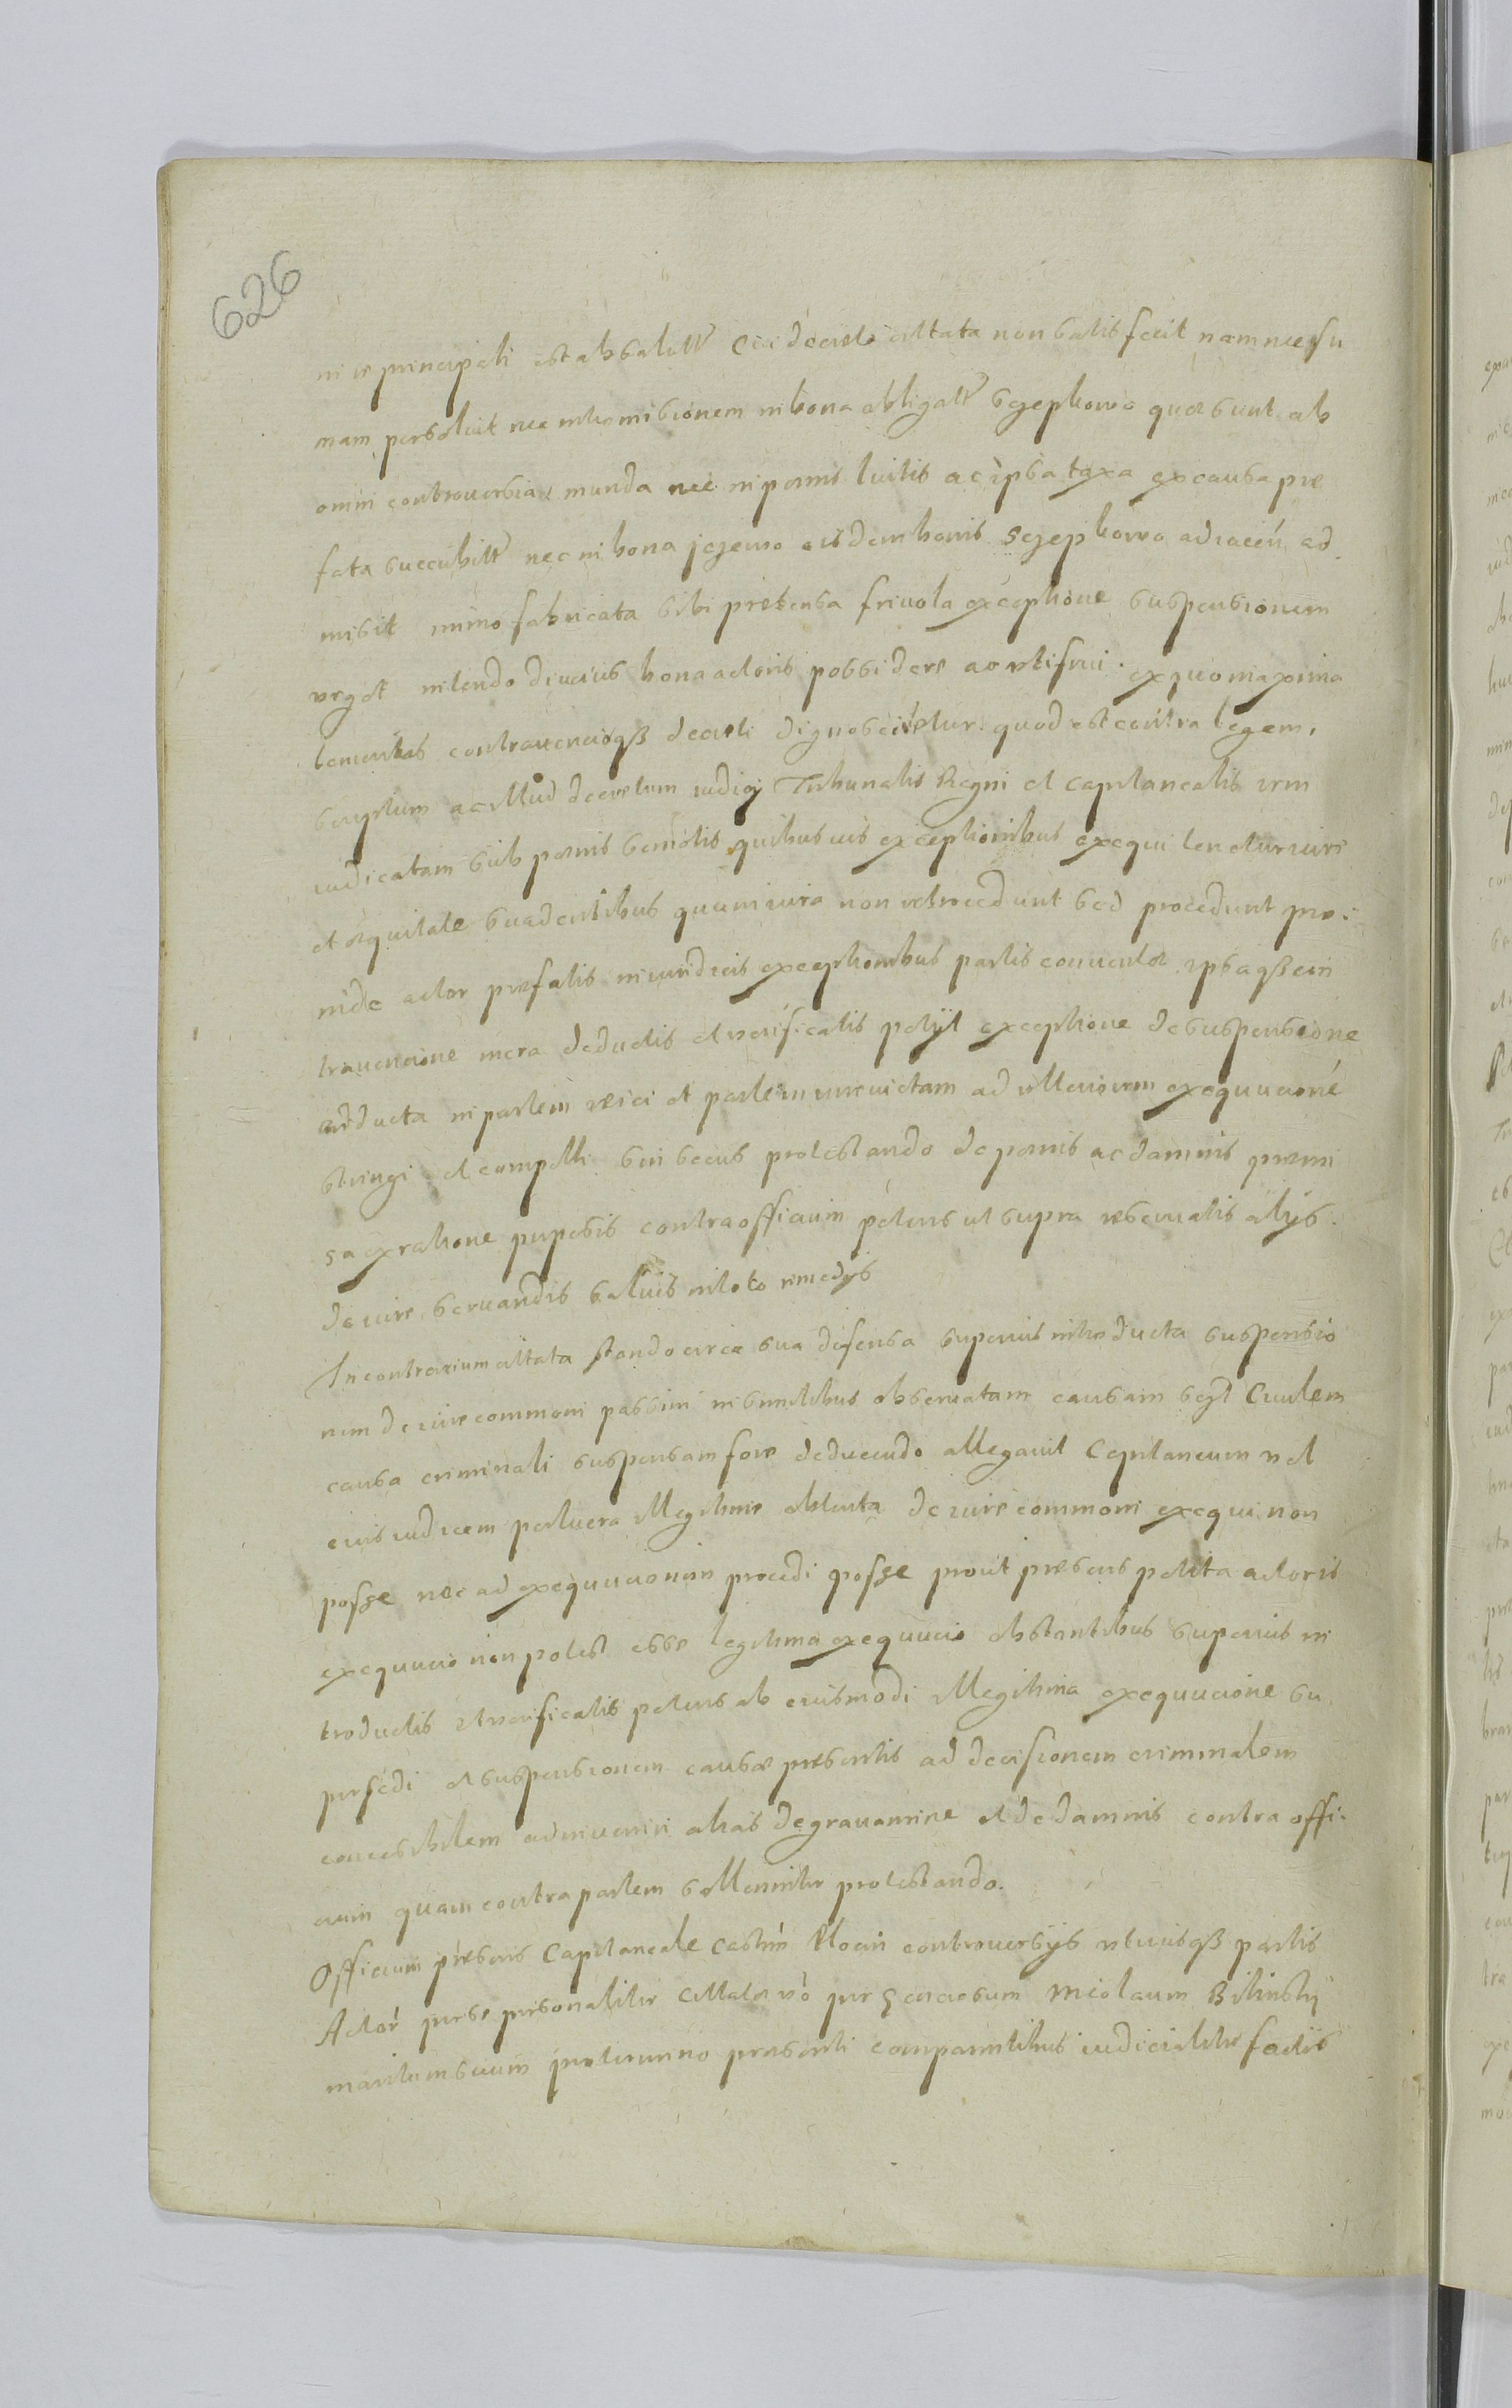 626
in re principali est absolutt Cui decreto citata non satisfecit nam nec su
mam persolvit nec intromissionem in bona obligatt Sczepkowo quae sunt ab
omni controuersia munda nec in poenis luitis ac ipsa taxa ex causa pre
fata succubitt nec in bona jezewo eisdem bonis Sczepkowo adiacen ad
misit immo fabricata sibi pretensa friuola exceptione suspensionem
urget nitendo diucius bona actoris possidere ac utifrui. ex quo maxima
temeritas contrauencioqß decreti dignosceretur quod est contra legem,
scriptum ac illud decretum iudicij Tribunalis Regni et Capitanealis rem
iudicatam sub poenis semotis quibusuis exceptionibus exequi tenetur iure
et aequitate suadentibus quum iura non retrocedunt sed procedunt pro:
inde actor prefatis in iuridicis exceptionibus partis conuictae ipsaqß con
trauencione mera deductis et verificatis petijt exceptione de suspensione
adducta in partem reici et partem iure victam ad ulteriorem exequucione
stringi et compelli sin secus protestando de poenis ac damnis premi
sa ex ratione propositis contra officium petens ut supra reseruatis alijs
de iure seruandis saluis in toto remedijs
In contrarium citata stando circa sua defensa superius introducta suspensio
nem de iure communi passim in similibus obseruatam causam sczt Ciuilem
causa criminali suspensam fore deducendo allegauit Capitaneum vel
eius iudicem parluera illegitime obtenta de iure communi exequi non
posse nec ad exequucionem procedi posse prout presens petita actoris
exequucio non potest esse legitima exequucio obstantibus superius in
troductis et verificatis petens ab eiusmodi illegitima exequucione su
persedi et suspensionem causae presentis ad decisionem criminalem
concessibilem adinueniri alias de grauamine et de damnis contra offi:
cium quam contra partem sollemniter protestando.
Officium presens Capitaneale Castren Plocen controuersijs utriusqß partis
Actor per se personaliter Citatae vo per generosum Nicolaum Bilinskj
maritum suum in termino presenti comparentibus iudicialiter factis